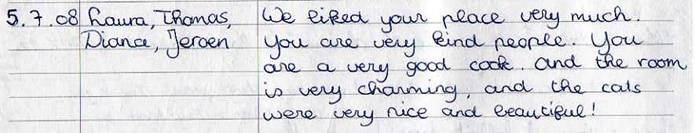 5.7.08 Laura, Thomas, We liked your place very much.
Diana, Jeroen You are very kind people. You
are a very good cook. And the room
is very charming, and the cats
were very nice and beautiful!